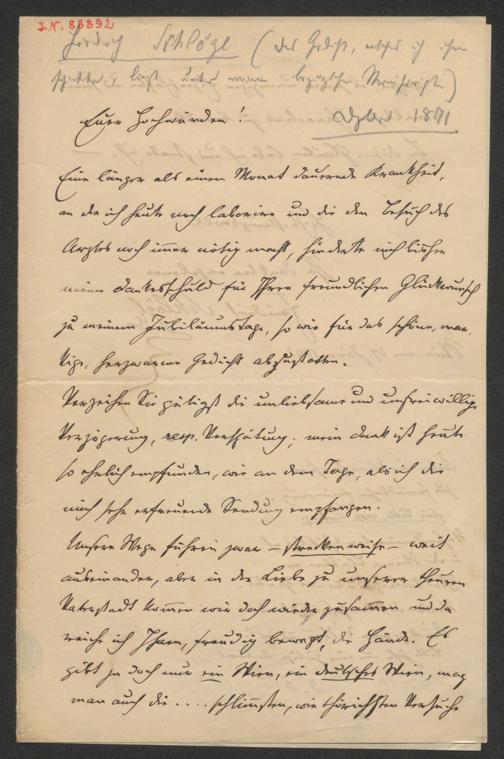 J.N. 88892
Friedrich Schlögl (das Gedicht, welches ich ihm
liegt unter man Manuscripte)
Euer Hochwürden!
1891
Eine länger als einen Monat dauernde Krankheit,
an der ich heute noch laborire und die den Besuch des
Arztes noch immer nötig macht, hinderte mich bisher
meine Dankesschuld für Ihren freundlichen Glückwunsch
zu meinem Jubiläumstage, so wie für das schöne, mar-
kige, herzwarme Gedicht abzustatten.
Verzeihen Sie gütigst die unliebsame und unfreiwillige
Verzögerung, resp. Verspätung; mein Dank ist heute
so ehrlich empfunden, wie an dem Tage, als ich die
mich sehr erfreuende Sendung empfangen.
Unsere Wege führen zwar – streckenweise – weit
auseinander, aber in der Liebe zu unserer theuren
Vaterstadt kommen wir doch wieder zusammen und da
reiche ich Ihnen, freudig bewegt, die Hände. Es
gibt ja doch nur ein Wien, ein deutsches Wien, mag
man auch die .... schlimmsten, wie thörichsten Versuche